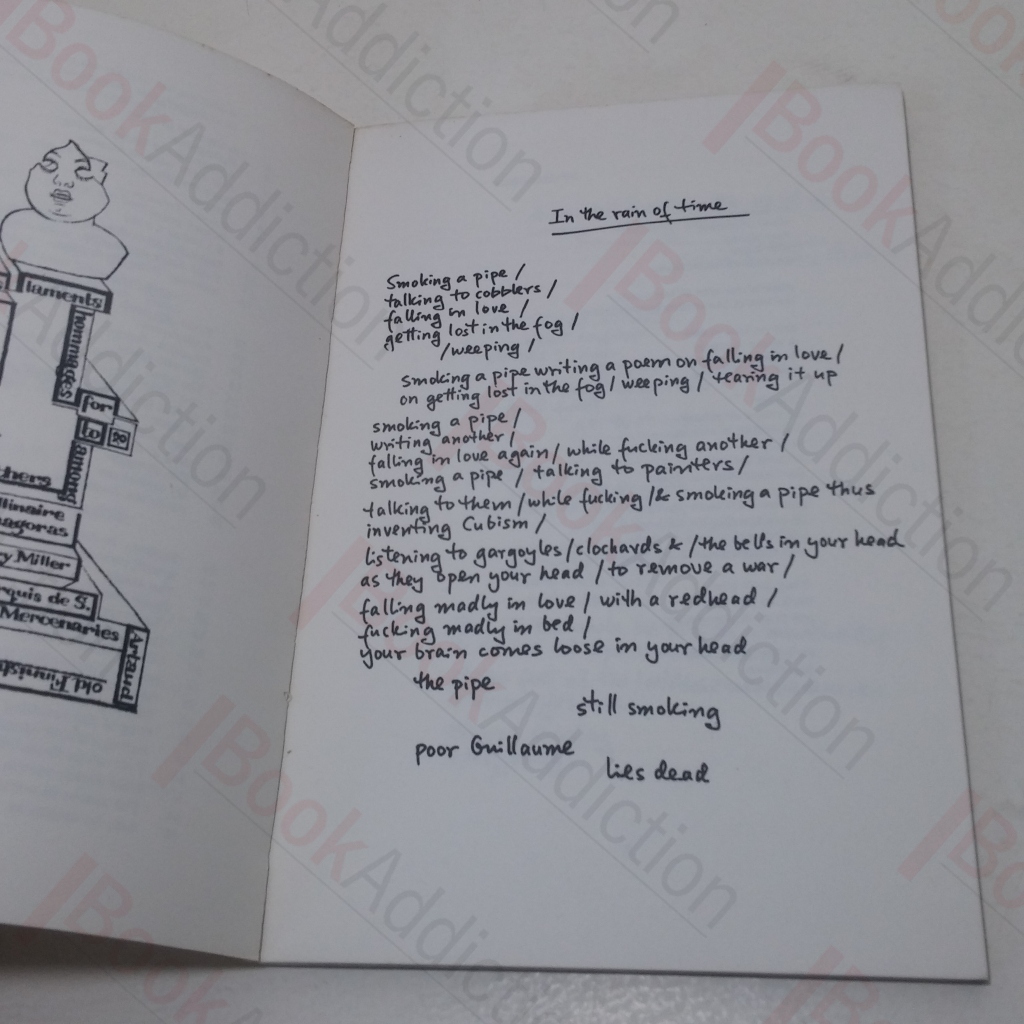 laments
hommages
for
to
20
among
hers
llinaire
agoras
y Miller
rquis de S.
Mercenaries
Artaud
old Finnish
In the rain of time
Smoking a pipe /
talking to cobblers /
falling in love /
getting lost in the fog /
/weeping /
smoking a pipe writing a poem on falling in love /
on getting lost in the fog / weeping / tearing it up
smoking a pipe /
writing another /
falling in love again / while fucking another /
smoking a pipe / talking to painters /
talking to them / while fucking / & smoking a pipe thus
inventing Cubism /
listening to gargoyles / clochards & / the bells in your head
as they open your head / to remove a war /
falling madly in love / with a redhead /
fucking madly in bed /
your brain comes loose in your head
the pipe
still smoking
poor Guillaume
lies dead
BookAddiction
BookAddiction
BookAddiction
BookAddiction
BookAddiction
BookAddiction